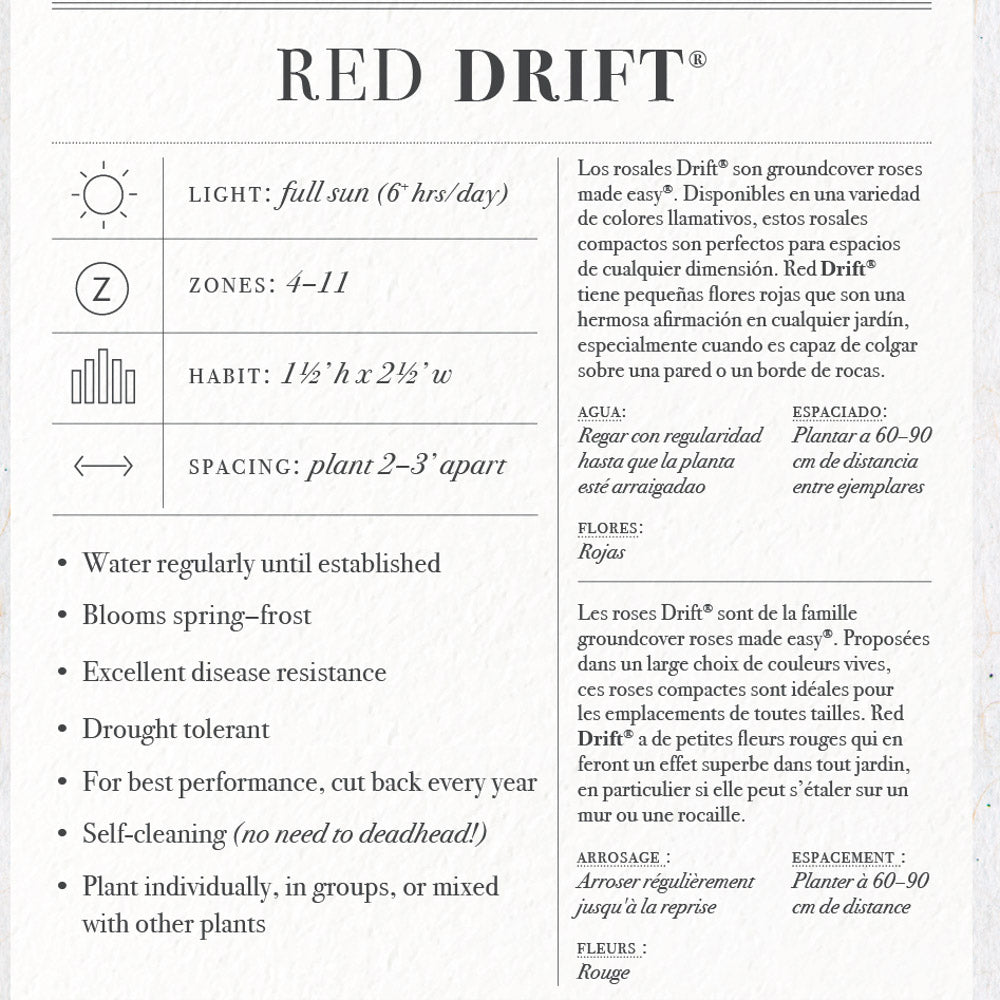 RED DRIFT®
LIGHT: full sun (6+ hrs/day)
Z
ZONES: 4–11
HABIT: 1½’ h x 2½’ w
SPACING: plant 2–3’ apart
• Water regularly until established
• Blooms spring–frost
• Excellent disease resistance
• Drought tolerant
• For best performance, cut back every year
• Self-cleaning (no need to deadhead!)
• Plant individually, in groups, or mixed
with other plants
Los rosales Drift® son groundcover roses
made easy®. Disponibles en una variedad
de colores llamativos, estos rosales
compactos son perfectos para espacios
de cualquier dimensión. Red Drift®
tiene pequeñas flores rojas que son una
hermosa afirmación en cualquier jardín,
especialmente cuando es capaz de colgar
sobre una pared o un borde de rocas.
AGUA:
Regar con regularidad
hasta que la planta
esté arraigadao
ESPACIADO:
Plantar a 60–90
cm de distancia
entre ejemplares
FLORES:
Rojas
Les roses Drift® sont de la famille
groundcover roses made easy®. Proposées
dans un large choix de couleurs vives,
ces roses compactes sont idéales pour
les emplacements de toutes tailles. Red
Drift® a de petites fleurs rouges qui en
feront un effet superbe dans tout jardin,
en particulier si elle peut s’étaler sur un
mur ou une rocaille.
ARROSAGE :
Arroser régulièrement
jusqu'à la reprise
ESPACEMENT :
Planter à 60–90
cm de distance
FLEURS :
Rouge